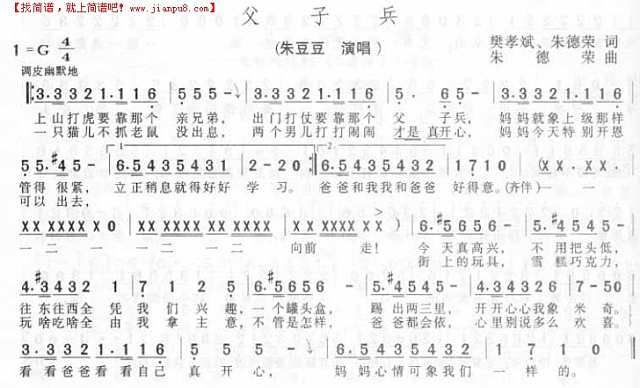 【找简谱，就上简谱吧！www.jianpu8.com】
父 子 兵
(朱豆豆 演唱)
1=G 4/4
樊孝斌、朱德荣 词
朱 德 荣 曲
调皮幽默地
3.3 3 3 2 1.1 1 6 5 5 5 - 3.3 3 3 2 1.1 1 6 5 5 5 - 3.3 3 3 2 1.1 1 6
上山打虎要靠那个 亲兄弟， 出门打仗要靠那个 父 子兵， 妈妈就象上级那样
一只猫儿不抓老鼠 没出息， 两个男儿打打闹闹 才是真开心， 妈妈今天特别开恩
5 5. #4 5 - 6.5 4 3 5 4 3 1 2 - 2 0 6.5 4 3 5 4 3 2 1 7 1 0 (X X. X X.
管得 很紧， 立正稍息就得好好 学 习。 爸爸和我我和爸爸 好得意。(齐伴)一 一
可以 出去，
X X X X X X 0 X X X X X X X X X X X X X -)
一 二 一 一 二 一 一 二 向前 走！ 今 天真高兴， 不 用把头低，
街 上的玩具， 雪 糕巧克力，
往东往西全 凭 我 们 兴 趣，一个罐头盒， 踢 出两三里， 开开心心我象 米 奇。
玩啥吃啥全 由 我 拿 主 意，不管是怎样， 爸 爸都会依， 心里别说多么 欢 喜。
3.3 3 3 2 1.1 1 6 5 5 5 - 6.5 4 3 5 4 3 2 1 7 0
看看爸爸看看自己 真 开 心， 妈妈心情可象我们 一 样 的。